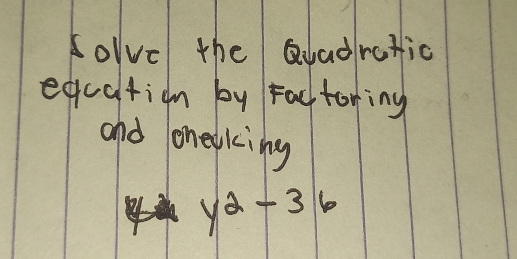 Solve the Quadratic
equation by Factoring
and checking
y2 - 36